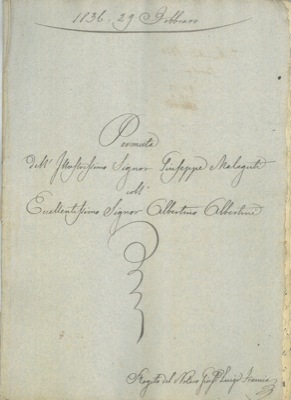 1836. 29 Febbraro
Permuta
dell' Illustrissimo Signor Giuseppe Malaguti
coll'
Eccellentissimo Signor Albertino Albertini
Rogito del Notaro Luigi